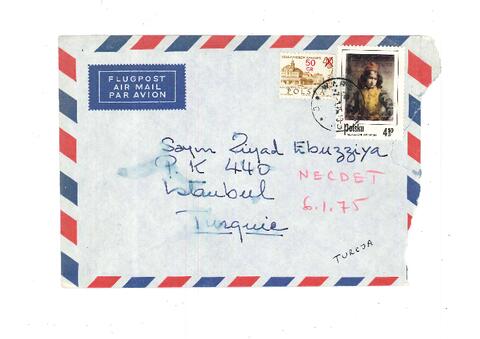 FLUGPOST
AIR MAIL
PAR AVION
50
GR
POLSKA
Polska
4.90
Sayın Ziyad Ebuzziya
P. K 440
Istanbul
Turquie
NECDET
6.1.75
TURCJA